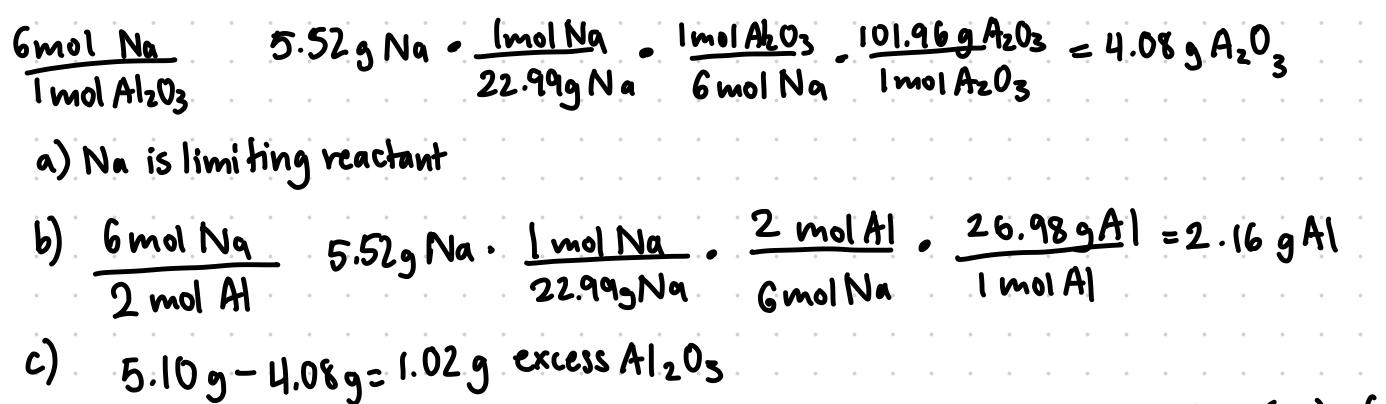 6mol Na / 1mol Al2O3   5.52g Na · 1mol Na / 22.99g Na · 1mol Al2O3 / 6mol Na · 101.96g A2O3 / 1mol A2O3 = 4.08 g A2O3
a) Na is limiting reactant
b) 6mol Na / 2 mol Al   5.52g Na · 1 mol Na / 22.99g Na · 2 mol Al / 6mol Na · 26.98 g Al / 1 mol Al = 2.16 g Al
c) 5.10g - 4.08g = 1.02g excess Al2O3